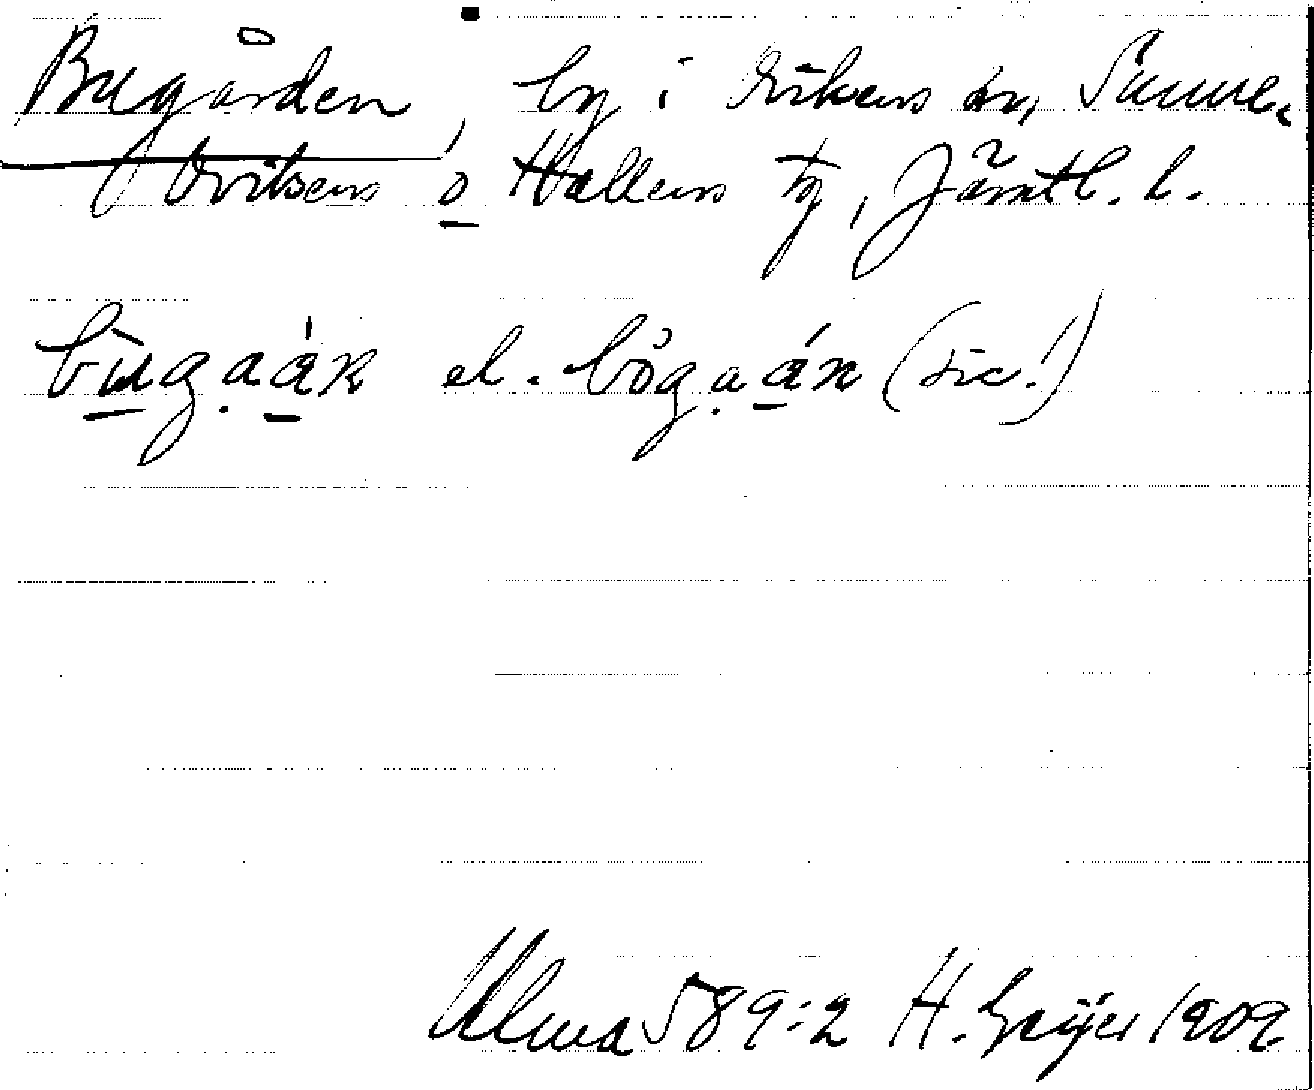 Bugården, by i Ovikens sn, Sunne,
Ovikens o Hallens tg, Jämtl. l.
bùgaán el. bỏgaán (sic!)
Ulma 589:2 H. Geijer 1909